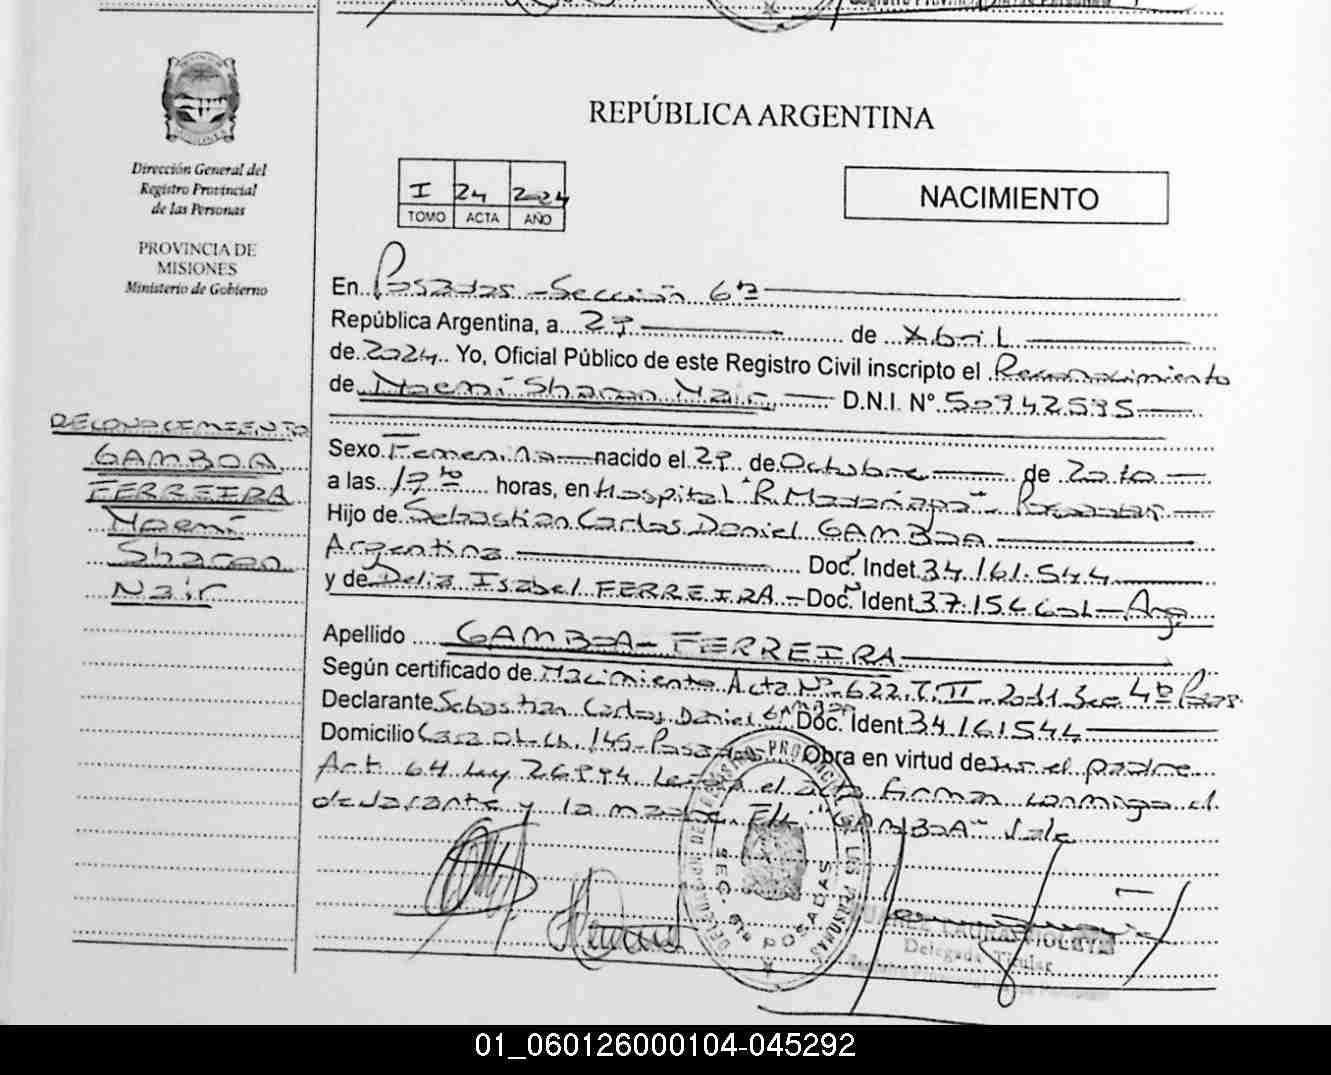 REPÚBLICA ARGENTINA
Dirección General del
Registro Provincial
de las Personas
PROVINCIA DE
MISIONES
Ministerio de Gobierno
I 24 2024
TOMO ACTA AÑO
NACIMIENTO
En Posadas - Sección 6ta
República Argentina, a 29 de Abril
de 2024 Yo, Oficial Público de este Registro Civil inscripto el Reconocimiento
de Noemí Sharon Nair D.N.I. N° 50.942.595
RECONOCIMIENTO
GAMBOA
FERREIRA
Noemí
Sharon
Nair
Sexo Femenino nacido el 29 de Octubre de 2010
a las horas, en Hospital "R. Madariaga" Posadas
Hijo de Sebastian Carlos Daniel GAMBOA
Argentina Doc. Indet 34.161.544
y de Delia Isabel FERREIRA - Doc. Ident 37.156 - Arg.
Apellido GAMBOA - FERREIRA
Según certificado de Nacimiento Acta N° 622 T. II 2011 Sec 4ta Pdas.
Declarante Sebastian Carlos Daniel GAMBOA Doc. Ident 34.161.544
Domicilio Casa 146 - Posadas Obra en virtud de ser el padre
Art 64 Ley 26994 el acta firman conmigo el
declarante y la madre. "GAMBOA" Vale
DELEGACION DE REGISTRO PROVINCIAL DE LAS PERSONAS
SEC. 6ta POSADAS
LAURA
Delegada Titular
01_060126000104-045292